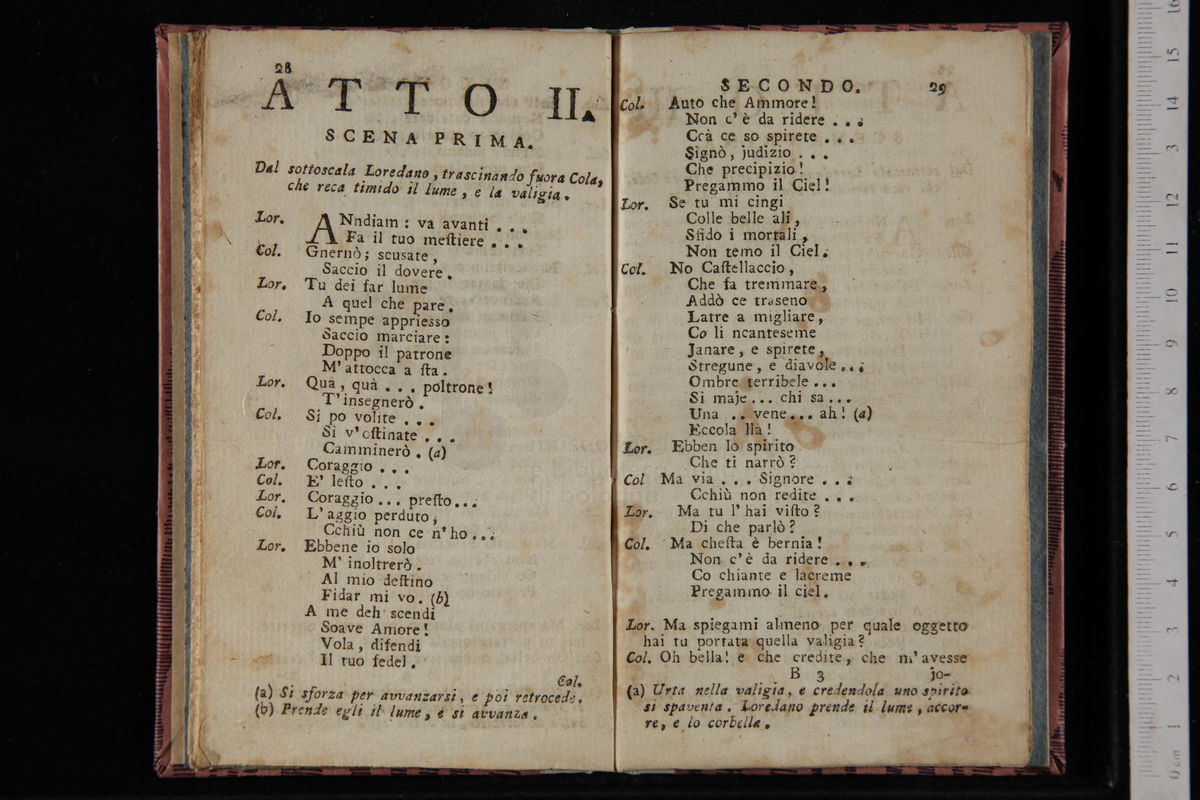 28
ATTO II.
SCENA PRIMA.
Dal sottoscala Loredano, trascinando fuora Cola,
che reca timido il lume, e la valigia.
Lor. ANndiam: va avanti ...
Fa il tuo meſtiere ...
Col. Gnernò; scusate,
Saccio il dovere.
Lor. Tu dei far lume
A quel che pare.
Col. Io sempe appriesso
Saccio marciare:
Doppo il patrone
M'attocca a ſta.
Lor. Quà, quà ... poltrone!
T'insegnerò.
Col. Si po volite ...
Si v'oſtinate ...
Camminerò. (a)
Lor. Coraggio ...
Col. E' leſto ...
Lor. Coraggio ... preſto...
Col. L'aggio perduto,
Cchiù non ce n'ho ...
Lor. Ebbene io solo
M'inoltrerò.
Al mio deſtino
Fidar mi vo. (b)
A me deh scendi
Soave Amore!
Vola, difendi
Il tuo fedel.
Col.
(a) Si sforza per avvanzarsi, e poi retrocede.
(b) Prende egli il lume, e si avvanza.
SECONDO. 29
Col. Auto che Ammore!
Non c'è da ridere ...
Ccà ce so spirete ...
Signò, judizio ...
Che precipizio!
Pregammo il Ciel!
Lor. Se tu mi cingi
Colle belle ali,
Sfido i mortali,
Non temo il Ciel.
Col. No Caſtellaccio,
Che fa tremmare,
Addò ce traseno
Latre a migliare,
Co li ncanteseme
Janare, e spirete,
Stregune, e diavole...
Ombre terribele...
Si maje... chi sa...
Una .. vene... ah! (a)
Eccola llà!
Lor. Ebben lo spirito
Che ti narrò?
Col Ma via ... Signore ...
Cchiù non redite ...
Lor. Ma tu l'hai viſto?
Di che parlò?
Col. Ma cheſta è bernia!
Non c'è da ridere ...
Co chiante e lacreme
Pregammo il ciel.
Lor. Ma spiegami almeno per quale oggetto
hai tu portata quella valigia?
Col. Oh bella! e che credite, che m'avesse
B 3 jo-
(a) Urta nella valigia, e credendola uno spirito
si spaventa. Loredano prende il lume, accor-
re, e lo corbella.
0 cm 1 2 3 4 5 6 7 8 9 10 11 12 13 14 15 16